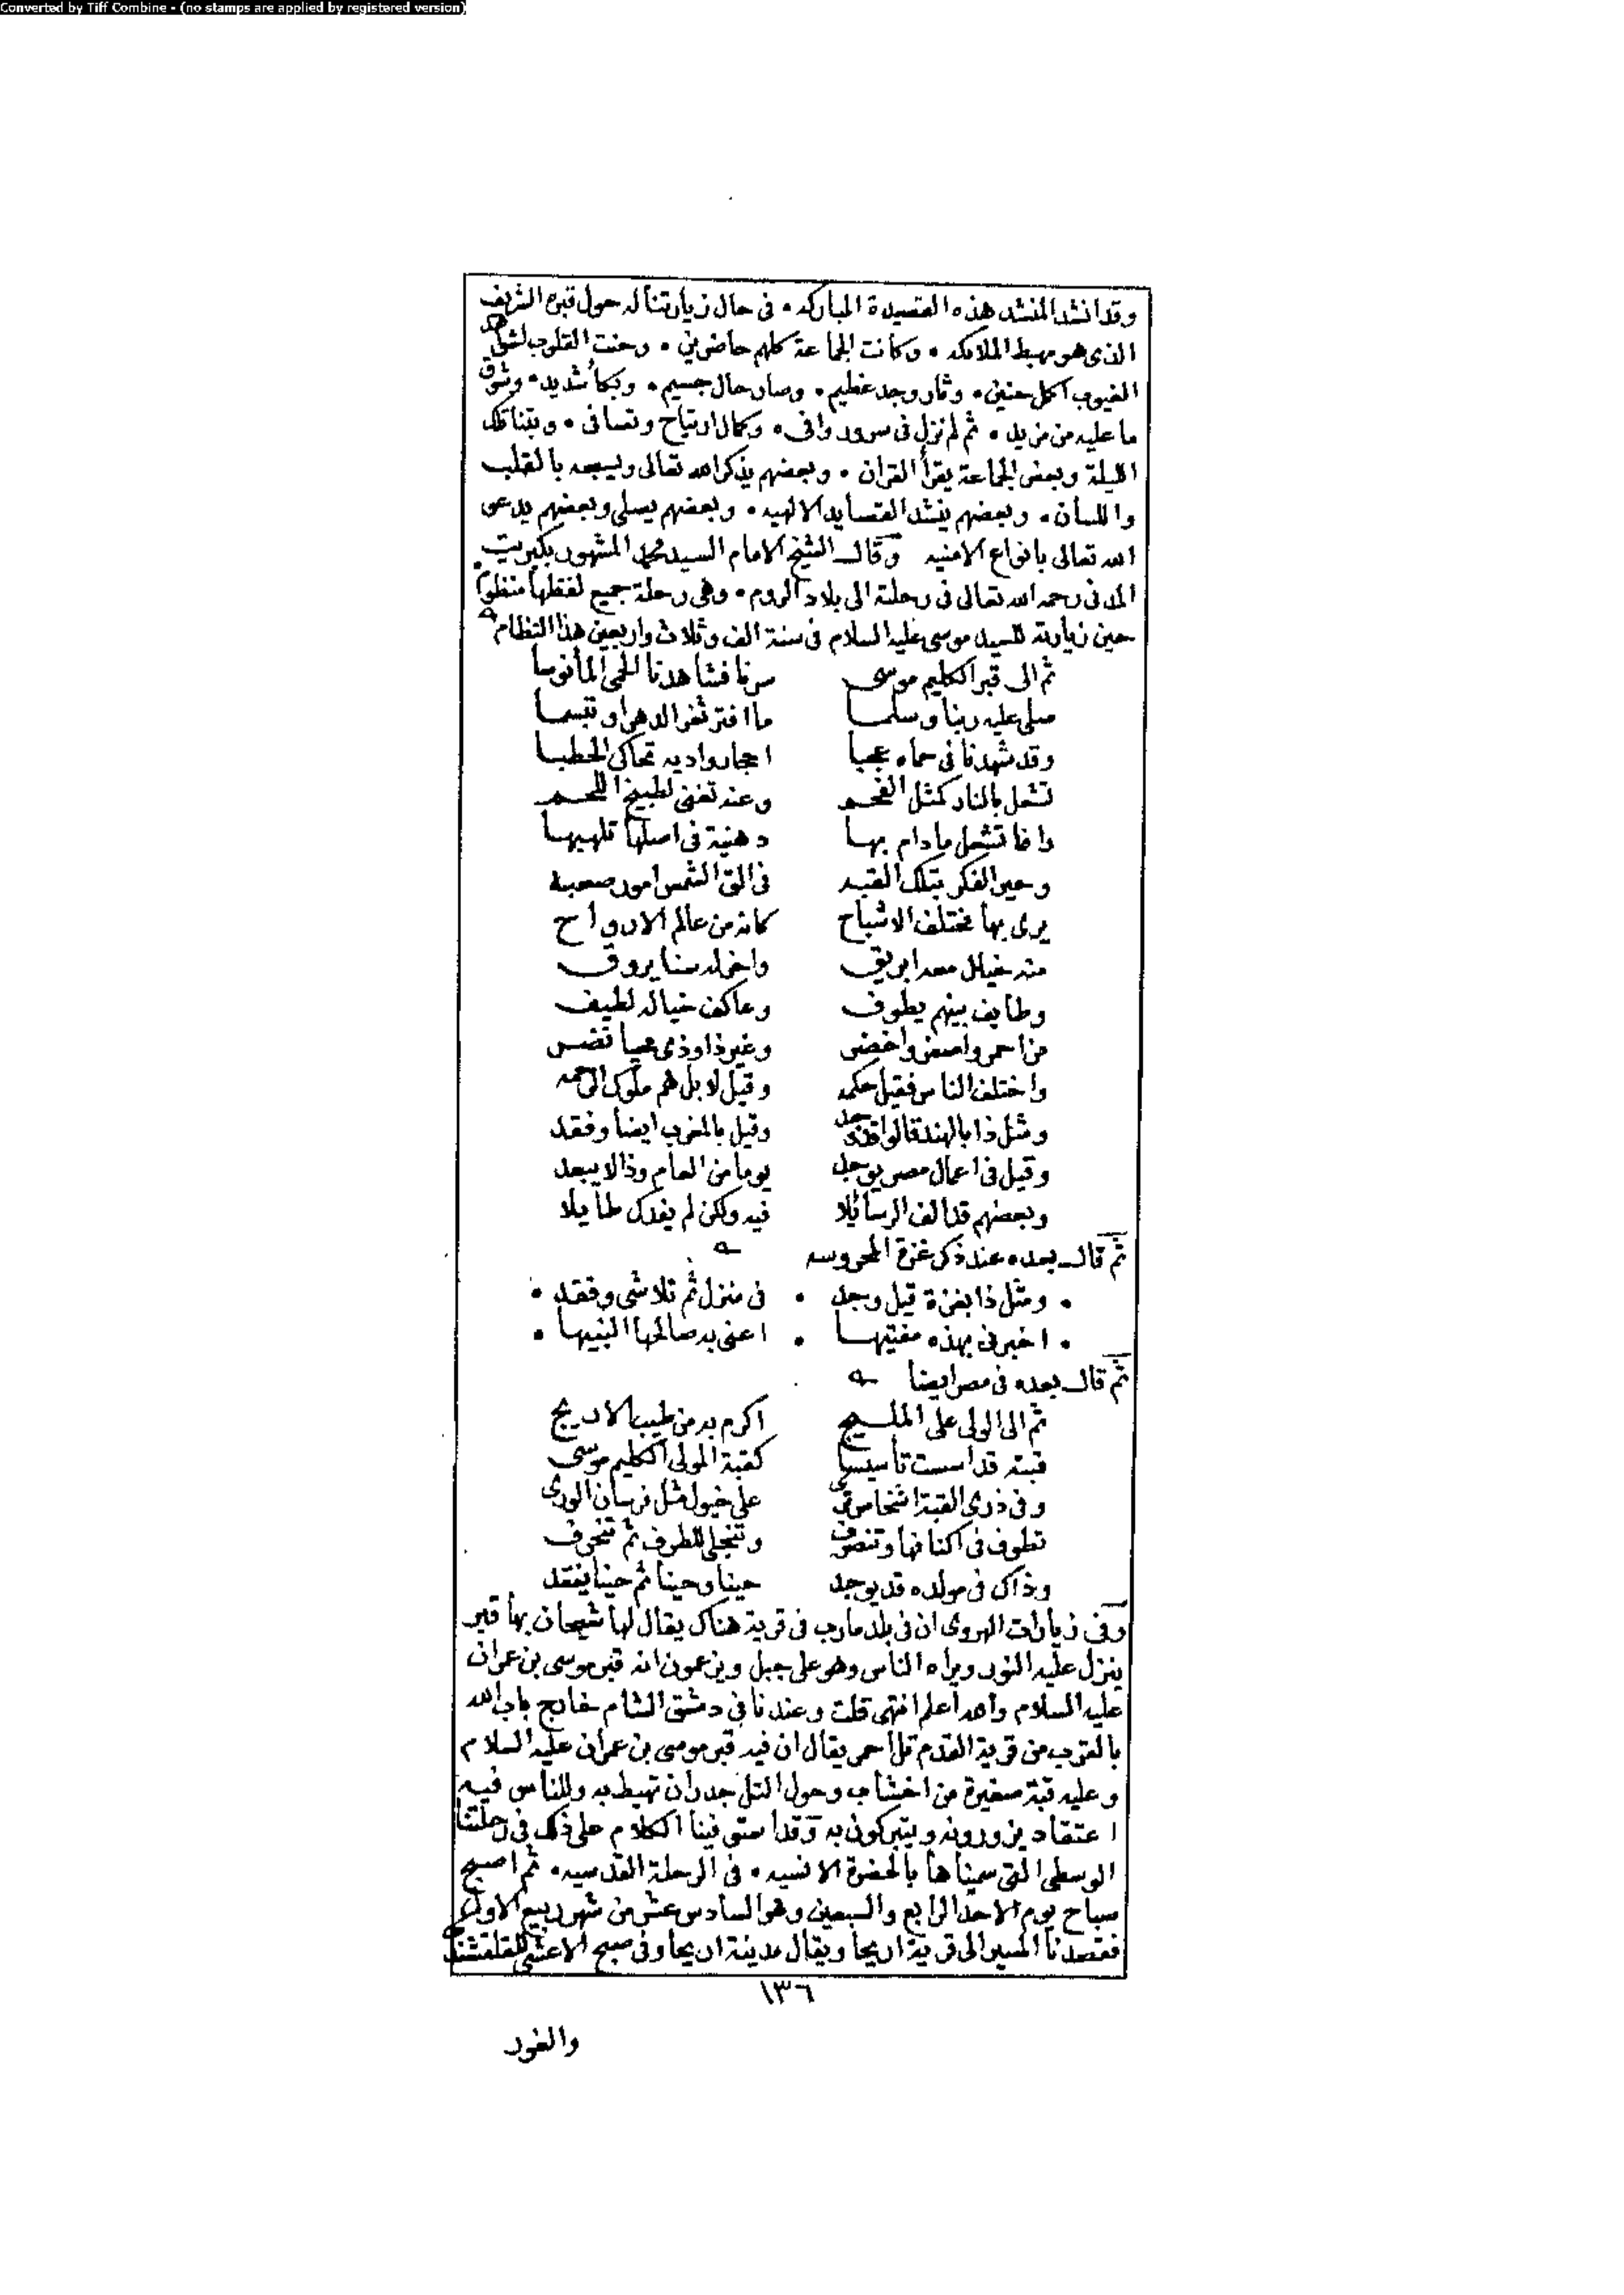 Converted by Tiff Combine - (no stamps are applied by registered version)
وقد انشد المنشد هذه القصيدة المباركه ٠ فى حال زيارتنا له حول قبره الشريف
الذى هو مهبط الملائكه ٠ وكانت الجماعة كلهم حاضرين ٠ وحنت القلوب
الغيوب اكمل حنين ٠ وثار وجد عظيم ٠ وصار حال جسيم ٠ وبكأ شديد ٠ وشوق
ما عليه من مزيد ٠ ثم لم نزل فى سرور وافى ٠ وكمال ارتياح وتصافى ٠ وبتنا تلك
الليلة وبعض الجماعة يقرأ القران ٠ وبعضهم يذكر الله تعالى ويسبحه بالقلب
واللسان ٠ وبعضهم ينشد القصايد الالهيه ٠ وبعضهم يصلى وبعضهم يدعو
الله تعالى بانواع الامنيه وقال الشيخ الامام السيد محمد المشهور بكبريت
المدنى رحمه الله تعالى فى رحلته الى بلاد الروم ٠ وهى رحلة جميع لفظها منظوم
حين زيارته للسيد موسى عليه السلام فى سنة الف وثلاث واربعين هذا النظام
ثم الى قبر الكليم موسى سرنا فشاهدنا الحمى المأنوسا
صلى عليه ربنا وسلما ما افتر ثغر الدهر او تبسما
وقد شهدنا فى حماه عجبا احجار واديه تحاكى الحطبا
تشعل بالنار كمثل الفحم وعنه تغنى لطبيخ اللحم
وانما تشعل ما دام بها دهنية فى اصلها تلهبها
وحير الفكر بتلك القبه فى الق الشمس امور صعبه
يرى بها مختلف الاشباح كانه من عالم الارواح
منه خيال معه ابريق واخر له سنا يروق
وطايف بينهم يطوف وعاكف خياله لطيف
من احمر واصفر واخضر وغير ذا وذى محيا نضر
واختلف الناس فقيل حكمه وقيل لا بل هم ملوك الرحمه
ومثل ذا بالهند قالوا قد وجد وقيل بالمغرب ايضا وفقد
وقيل فى اعمال مصر يوجد يوما من العام وذا لا يبعد
وبعضهم قد الف الرسائلا فيه ولكن لم يفدك طايلا
ثم قال بعده عند ذكر غزة المحروسه
٠ ومثل ذا بغزة قيل وجد ٠ فى منزل ثم تلاشى وفقد ٠
٠ اخبرنى بهذه مفتيها ٠ اعنى به صالحها النبيها ٠
ثم قال بعده فى مصر ايضا
ثم الى الولى على المليج اكرم به من طيب الاريج
قبته قد اسست تأسيسا كقبة المولى الكليم موسى
وفى ذرى القبة اشخاص ترى على خيول مثل فرسان الورى
تطوف فى اكنافها وتنصرف وتنجلى للطرف ثم تنحرف
وذاك فى مولده قد يوجد حينا وحينا ثم حينا يفقد
وفى زيارات الهروى ان فى بلد مارب فى قرية هناك يقال لها شيحان بها قبر
ينزل عليه النور ويراه الناس وهو على جبل ويزعمون انه قبر موسى بن عمران
عليه السلام والله اعلم انتهى قلت وعندنا فى دمشق الشام خارج باب الله
بالقرب من قرية القدم تل احمر يقال ان فيه قبر موسى بن عمران عليه السلام
وعليه قبة صغيرة من اخشاب وحول التل جدران تحيط به وللناس فيه
اعتقاد يزورونه ويتبركون به وقد استوفينا الكلام على ذلك فى رحلتنا
الوسطى التى سميناها بالحضرة الانسيه ٠ فى الرحلة القدسيه ٠ ثم اصبح
صباح يوم الاحد الرابع والسبعين وهو السادس عشر من شهر ربيع الاول
فقصدنا المسير الى قرية اريحا ويقال مدينة اريحا وفى صبح الاعشى للقلقشندى
١٣٦
والغور